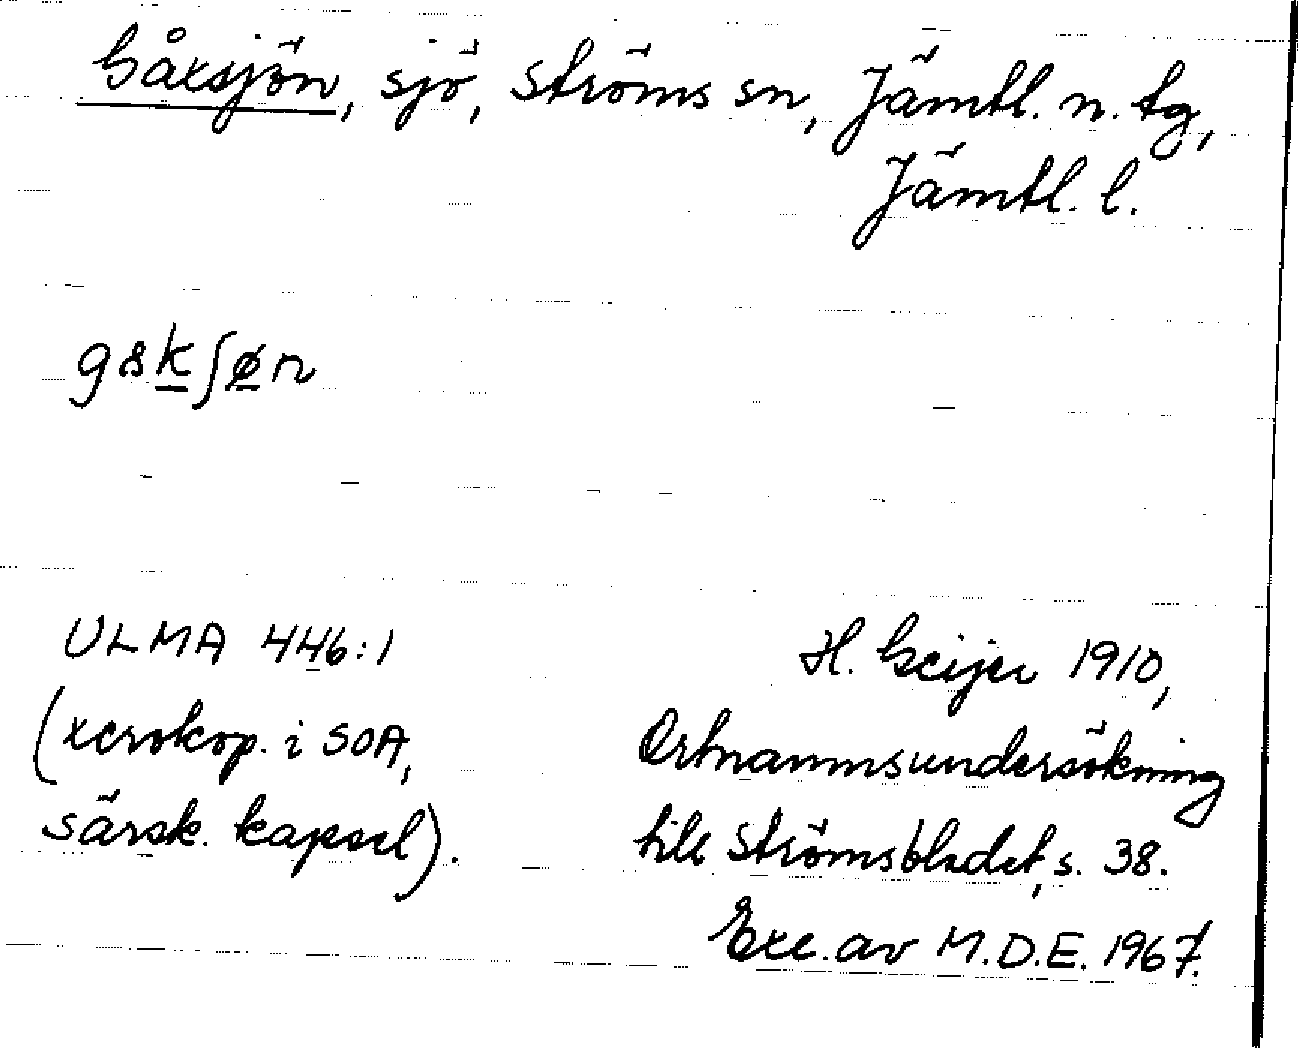 Gåxsjön, sjö, Ströms sn, Jämtl. n. tg,
Jämtl. l.
gȣkʃøn
ULMA 446:1
(xerokop. i SOA,
särsk. kapsel).
H. Geijer 1910,
Ortnamnsundersökning
till Strömsbladet, s. 38.
Exc. av M.D.E. 1967.